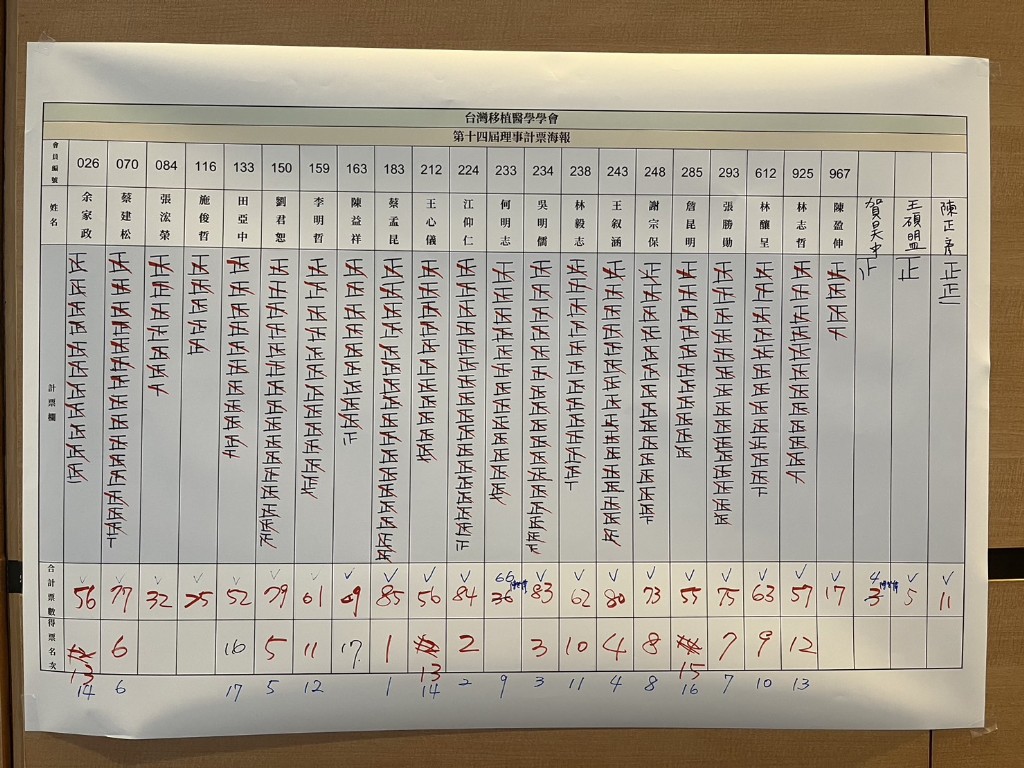 台灣移植醫學學會
第十四屆理事計票海報
會員編號 026 070 084 116 133 150 159 163 183 212 224 233 234 238 243 248 285 293 612 925 967
姓名 余家政 蔡建松 張浤榮 施俊哲 田亞中 劉君恕 李明哲 陳益祥 蔡孟昆 王心儀 江仰仁 何明志 吳明儒 林毅志 王叙涵 謝宗保 詹昆明 張勝勛 林釀呈 林志哲 陳盈伸 王碩盟
計票欄 正 正正
66 4
合計票數 56 77 32 25 52 79 61 49 85 56 84 36 83 62 80 73 55 75 63 57 17 3 5 11
得票名次 6 16 5 11 17 1 2 3 10 4 8 7 9 12
13 13 15
14 6 17 5 12 1 14 2 9 3 11 4 8 16 7 10 13